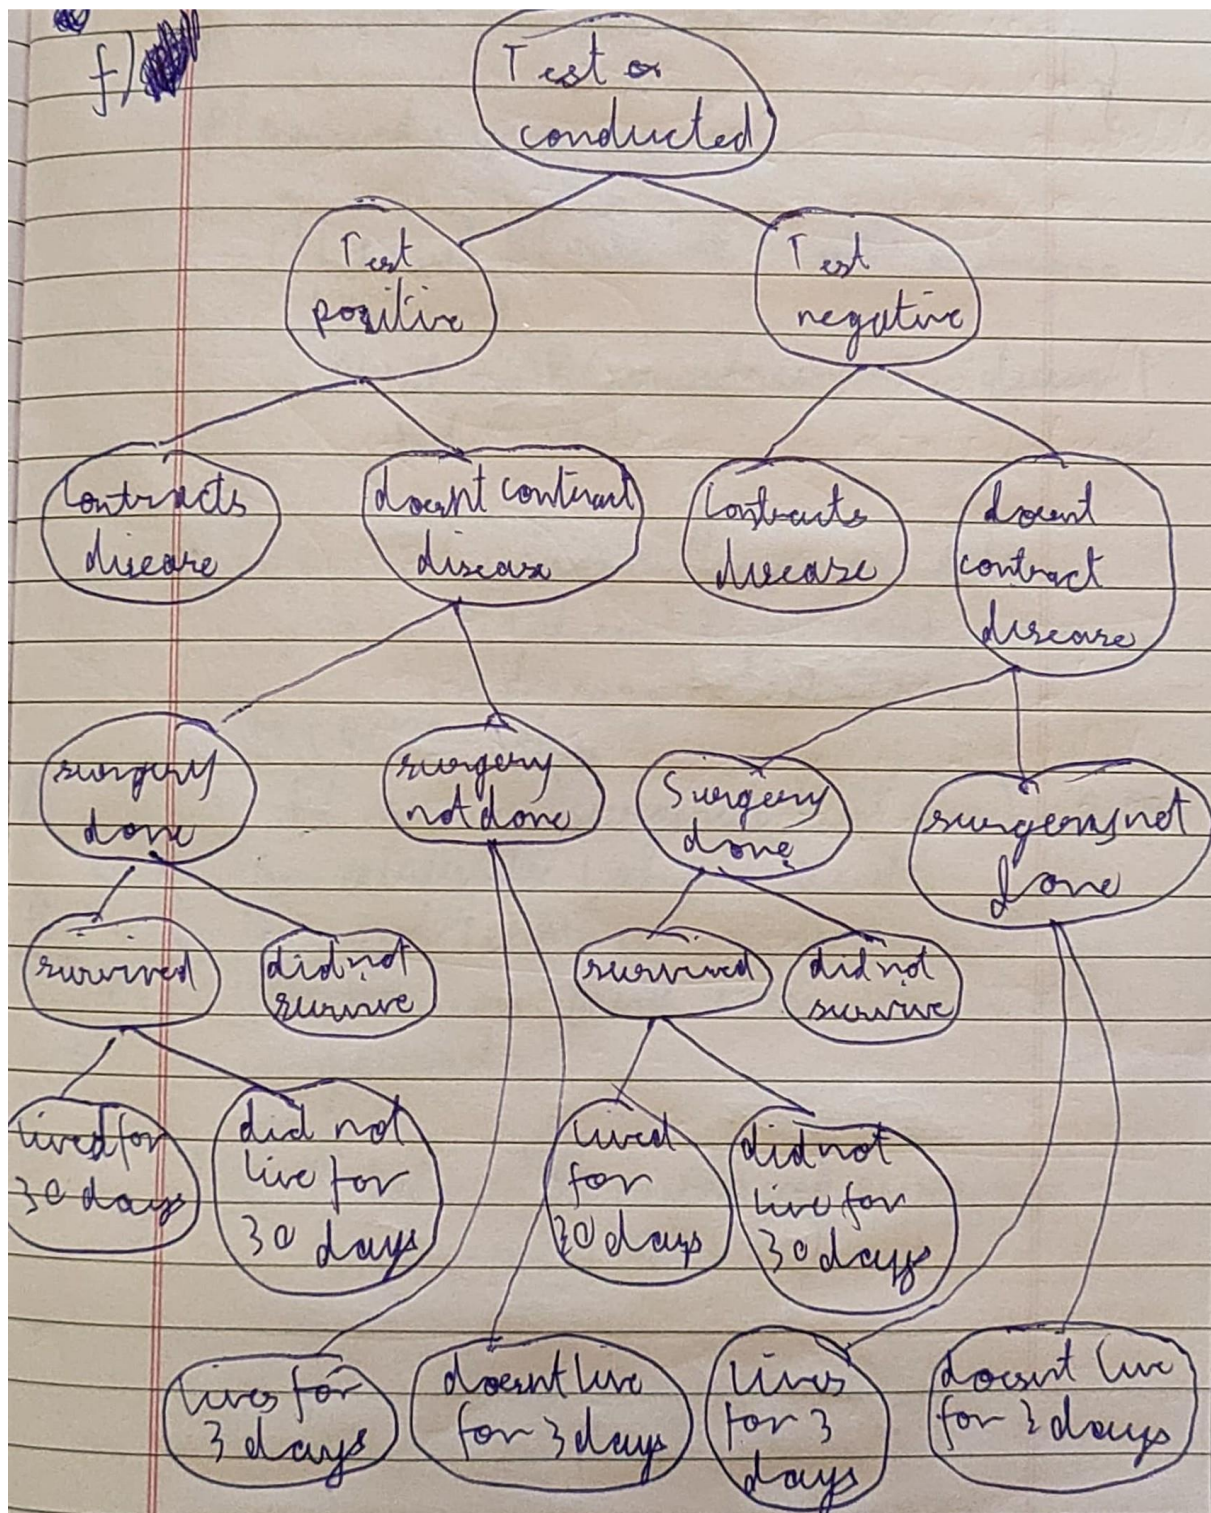 f)
Test
conducted
Test
positive
Test
negative
Contracts
disease
doesnt contract
disease
Contracts
disease
doesnt
contract
disease
surgery
done
surgery
not done
Surgery
done
surgery not
done
survived
did not
survive
survived
did not
survive
lived for
30 days
did not
live for
30 days
lived
for
30 days
did not
live for
30 days
lives for
3 days
doesnt live
for 3 days
lives
for 3
days
doesnt live
for 3 days